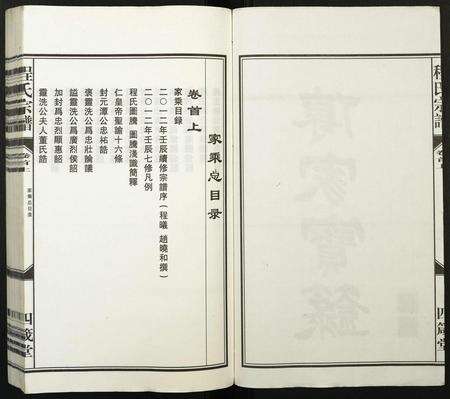 家乘总目录
卷首上
家乘目录
二〇一二年壬辰續修宗譜序（程曦 趙曉和撰）
二〇一二年壬辰七修凡例
程氏圖騰 圖騰淺識簡釋
仁皇帝聖諭十六條
封元潭公忠祐誥
褒靈洗公爲忠壯論議
謚靈洗公爲廣烈侯誥
加封爲忠烈顯惠誥
靈洗公夫人董氏誥
程氏宗譜
卷首上
家乘总目录
四箴堂
程氏宗譜
卷首上
四箴堂